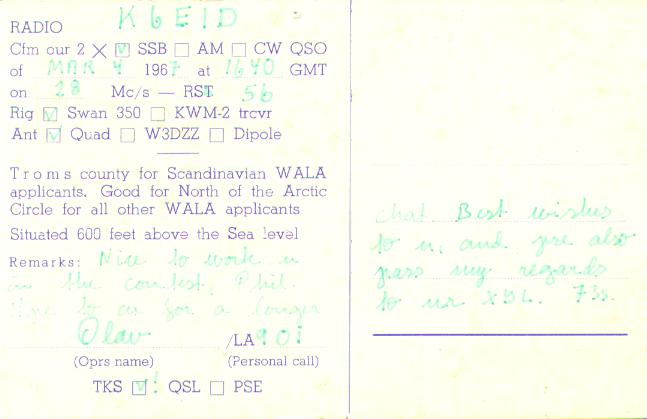 RADIO K6EID
Cfm our 2 × ☑ SSB ☐ AM ☐ CW QSO
of MAR 4 1967 at 1640 GMT
on 28 Mc/s — RST 56
Rig ☑ Swan 350 ☐ KWM-2 trcvr
Ant ☑ Quad ☐ W3DZZ ☐ Dipole
Troms county for Scandinavian WALA
applicants. Good for North of the Arctic
Circle for all other WALA applicants
Situated 600 feet above the Sea level
Remarks: Nice to work u
in the contest, Phil.
Hpe to cu for a longer
Olav /LA
(Oprs name) (Personal call)
TKS ☑! QSL ☐ PSE
chat Best wishes
to u, and pse also
pass my regards
to ur XYL. 73s.